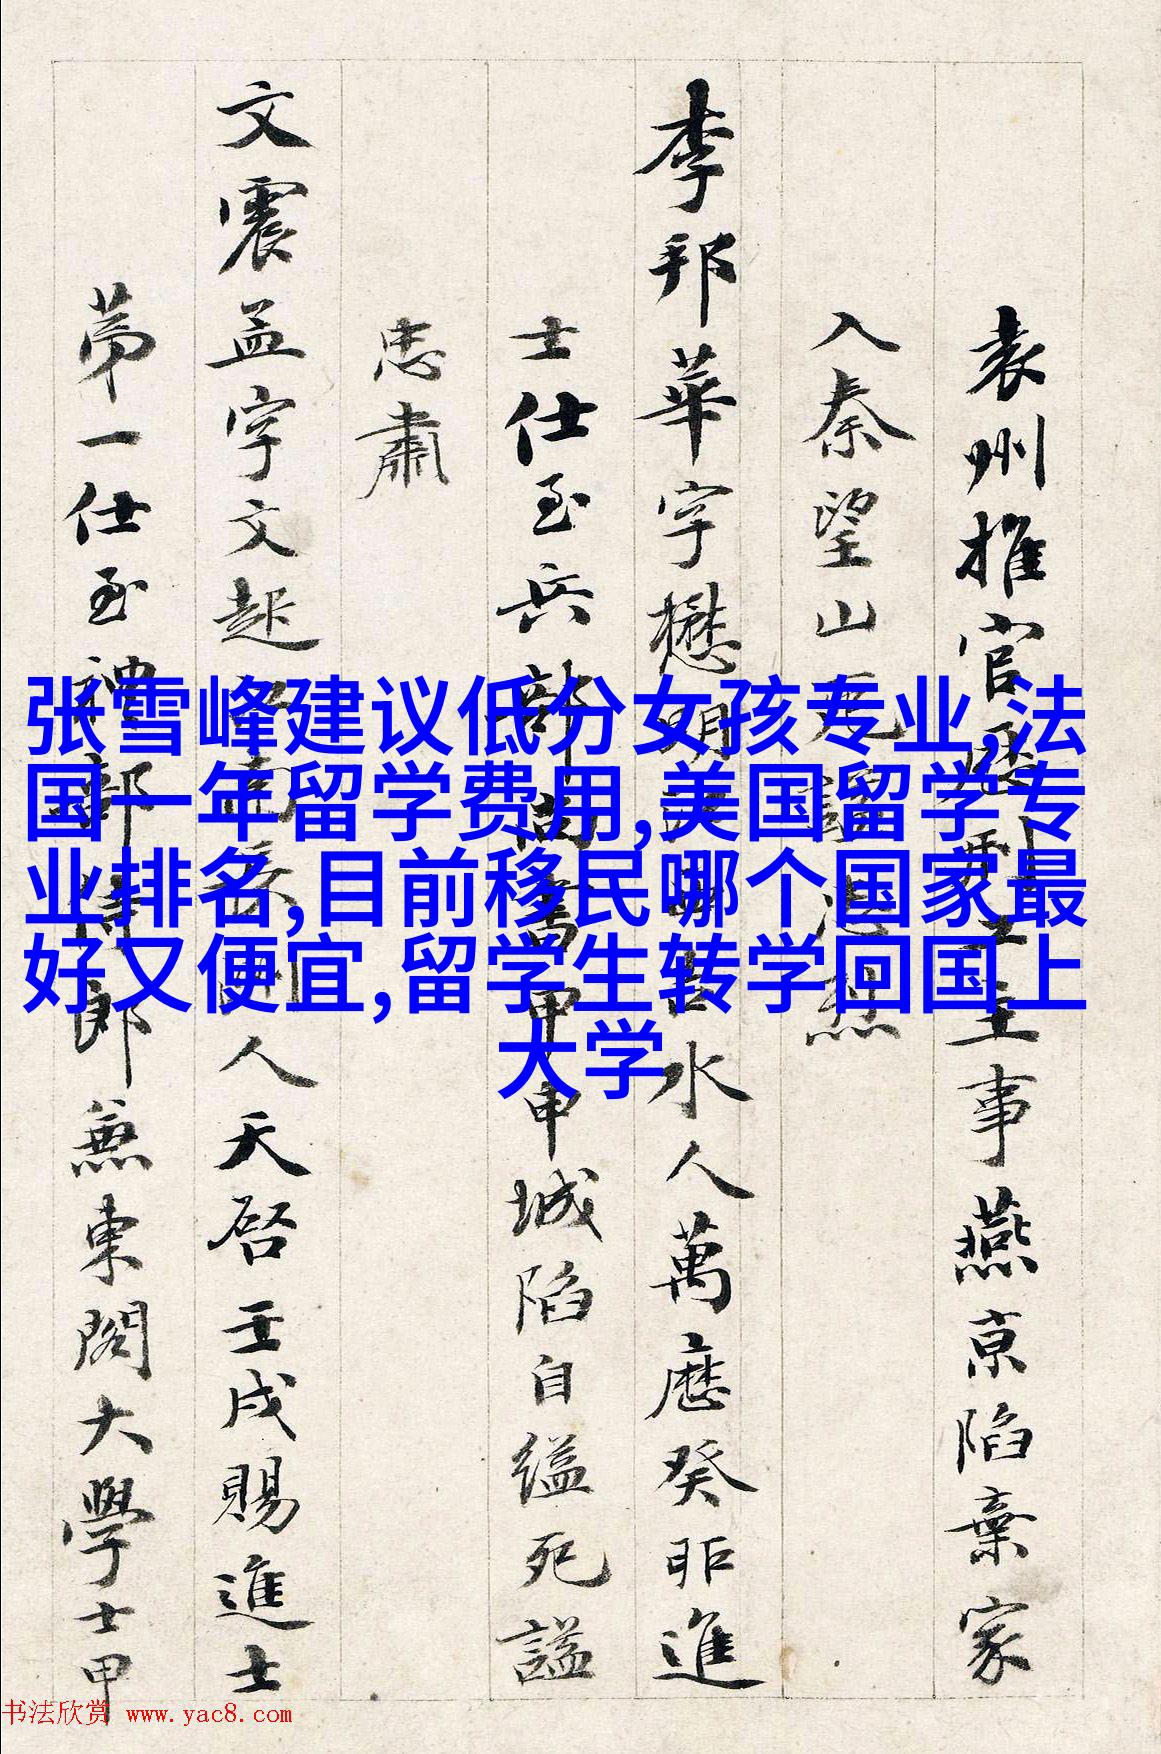 袁州推官
主事燕京陷棄家
入秦望山
李邦華字懋明
水人萬曆癸卯進
士仕至兵部
甲申城陷自縊死謚
忠肅
文震孟字文起
人天啓壬戌賜進士
第一仕至禮部侍郎兼東閣大學士甲
张雪峰建议低分女孩专业,法
国一年留学费用,美国留学专
业排名,目前移民哪个国家最
好又便宜,留学生转学回国上
大学
书法欣赏 www.yac8.com